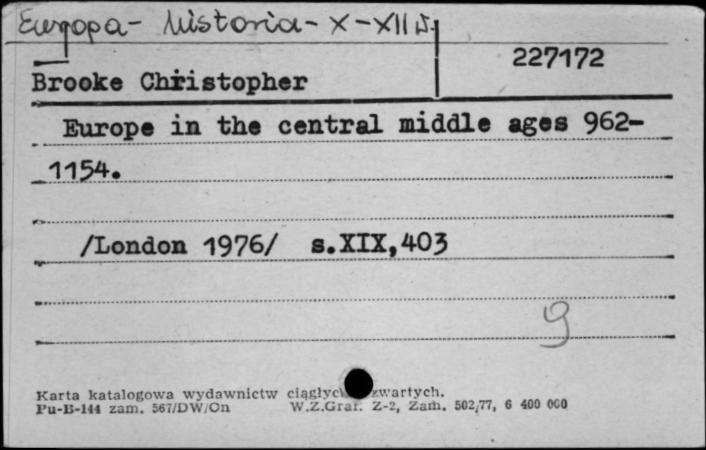 Europa - historia - X-XII w.
227172
Brooke Christopher
Europe in the central middle ages 962-
1154.
/London 1976/ s.XIX,403
9
Karta katalogowa wydawnictw zwartych.
Pu-B-144 zam. 567/DW/On W.Z.Graf. Z-2, Zam. 502/77, 6 400 000